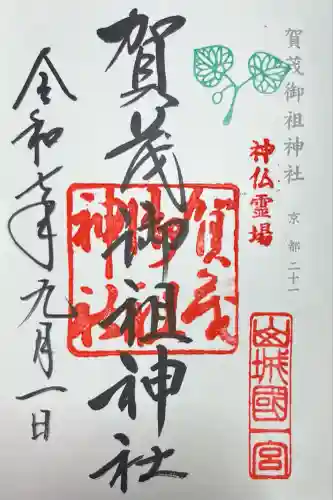 賀茂御祖神社 京都二十一
神仏霊場
山城國一宮
賀茂御祖神社
賀茂御祖神社
令和七年九月一日